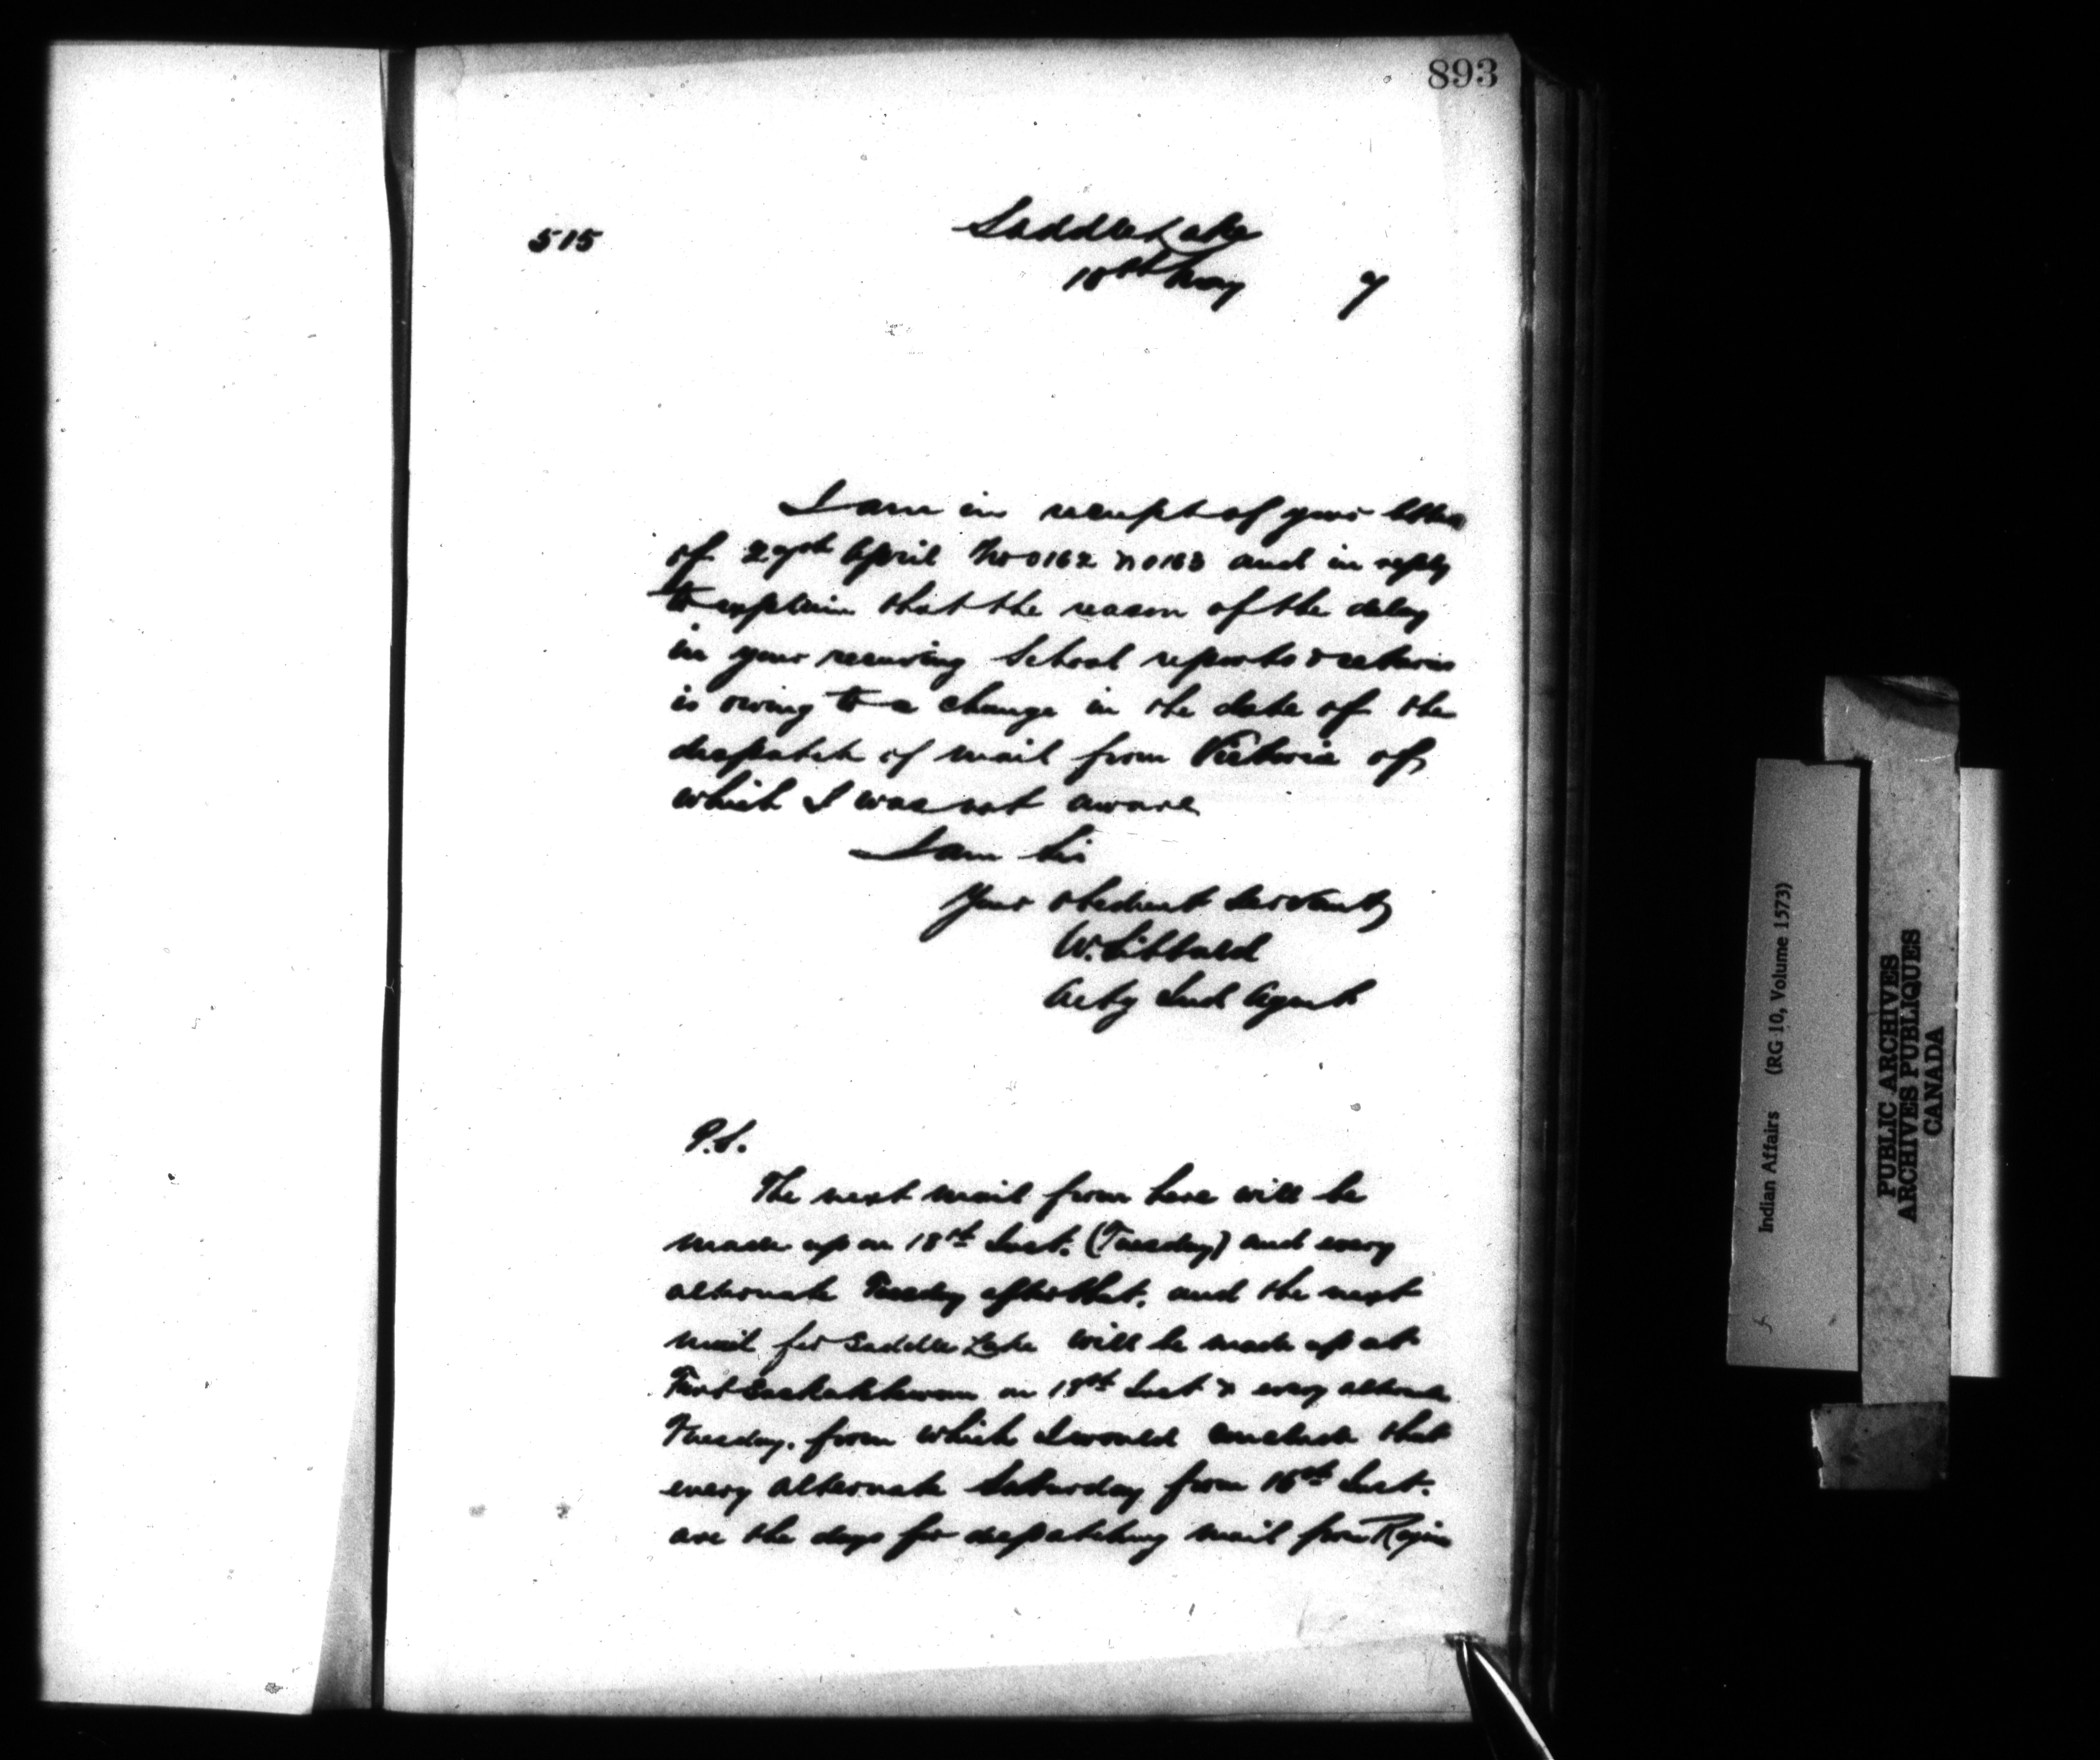 893
515
Saddle Lake
18th May 7
I am in receipt of your letter
of 29th April No 0162 & 0163 and in reply
to explain that the reason of the delay
in your receiving School reports & returns
is owing to a change in the date of the
despatch of mail from Victoria of
which I was not aware
I am Sir
Your obedient Servant
W. Sibbald
Actg Ind Agent
P.S.
The next mail from here will be
made up on 18th Inst. (Tuesday) and every
alternate Tuesday after that. and the next
mail for Saddle Lake will be made up at
Fort Saskatchewan on 18th Inst & every alternate
Tuesday. from which I would conclude that
every alternate Saturday from 15th Inst.
are the days for despatching mail from Regina
Indian Affairs (RG 10, Volume 1573)
PUBLIC ARCHIVES
ARCHIVES PUBLIQUES
CANADA